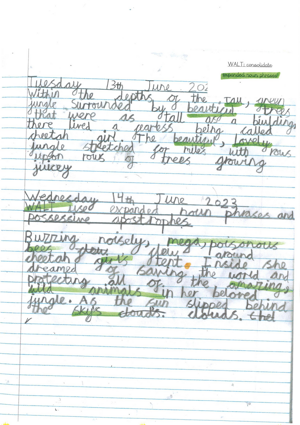 WALT: consolidate
expanded noun phrases!
Tuesday 13th June 202
Within the depths of the tall, green
jungle surrounded by beautiful trees
that were as tall as buildings
there lived a fearless being called
cheetah girl. The beautiful, lovely
jungle stretched for miles with rows
upson rows of trees growing
juicey
Wednesday 14th June 2023
WALT use expanded noun phrases and
possessive apostrophes.
Buzzing noisely, mega, poisonous
bees flew around
cheetah girl's tent. Inside she
dreamed of saving the world and
protecting all of the amazing,
wild animals in her beloved
jungle. As the sun slipped behind
the skys clouds. clouds. the